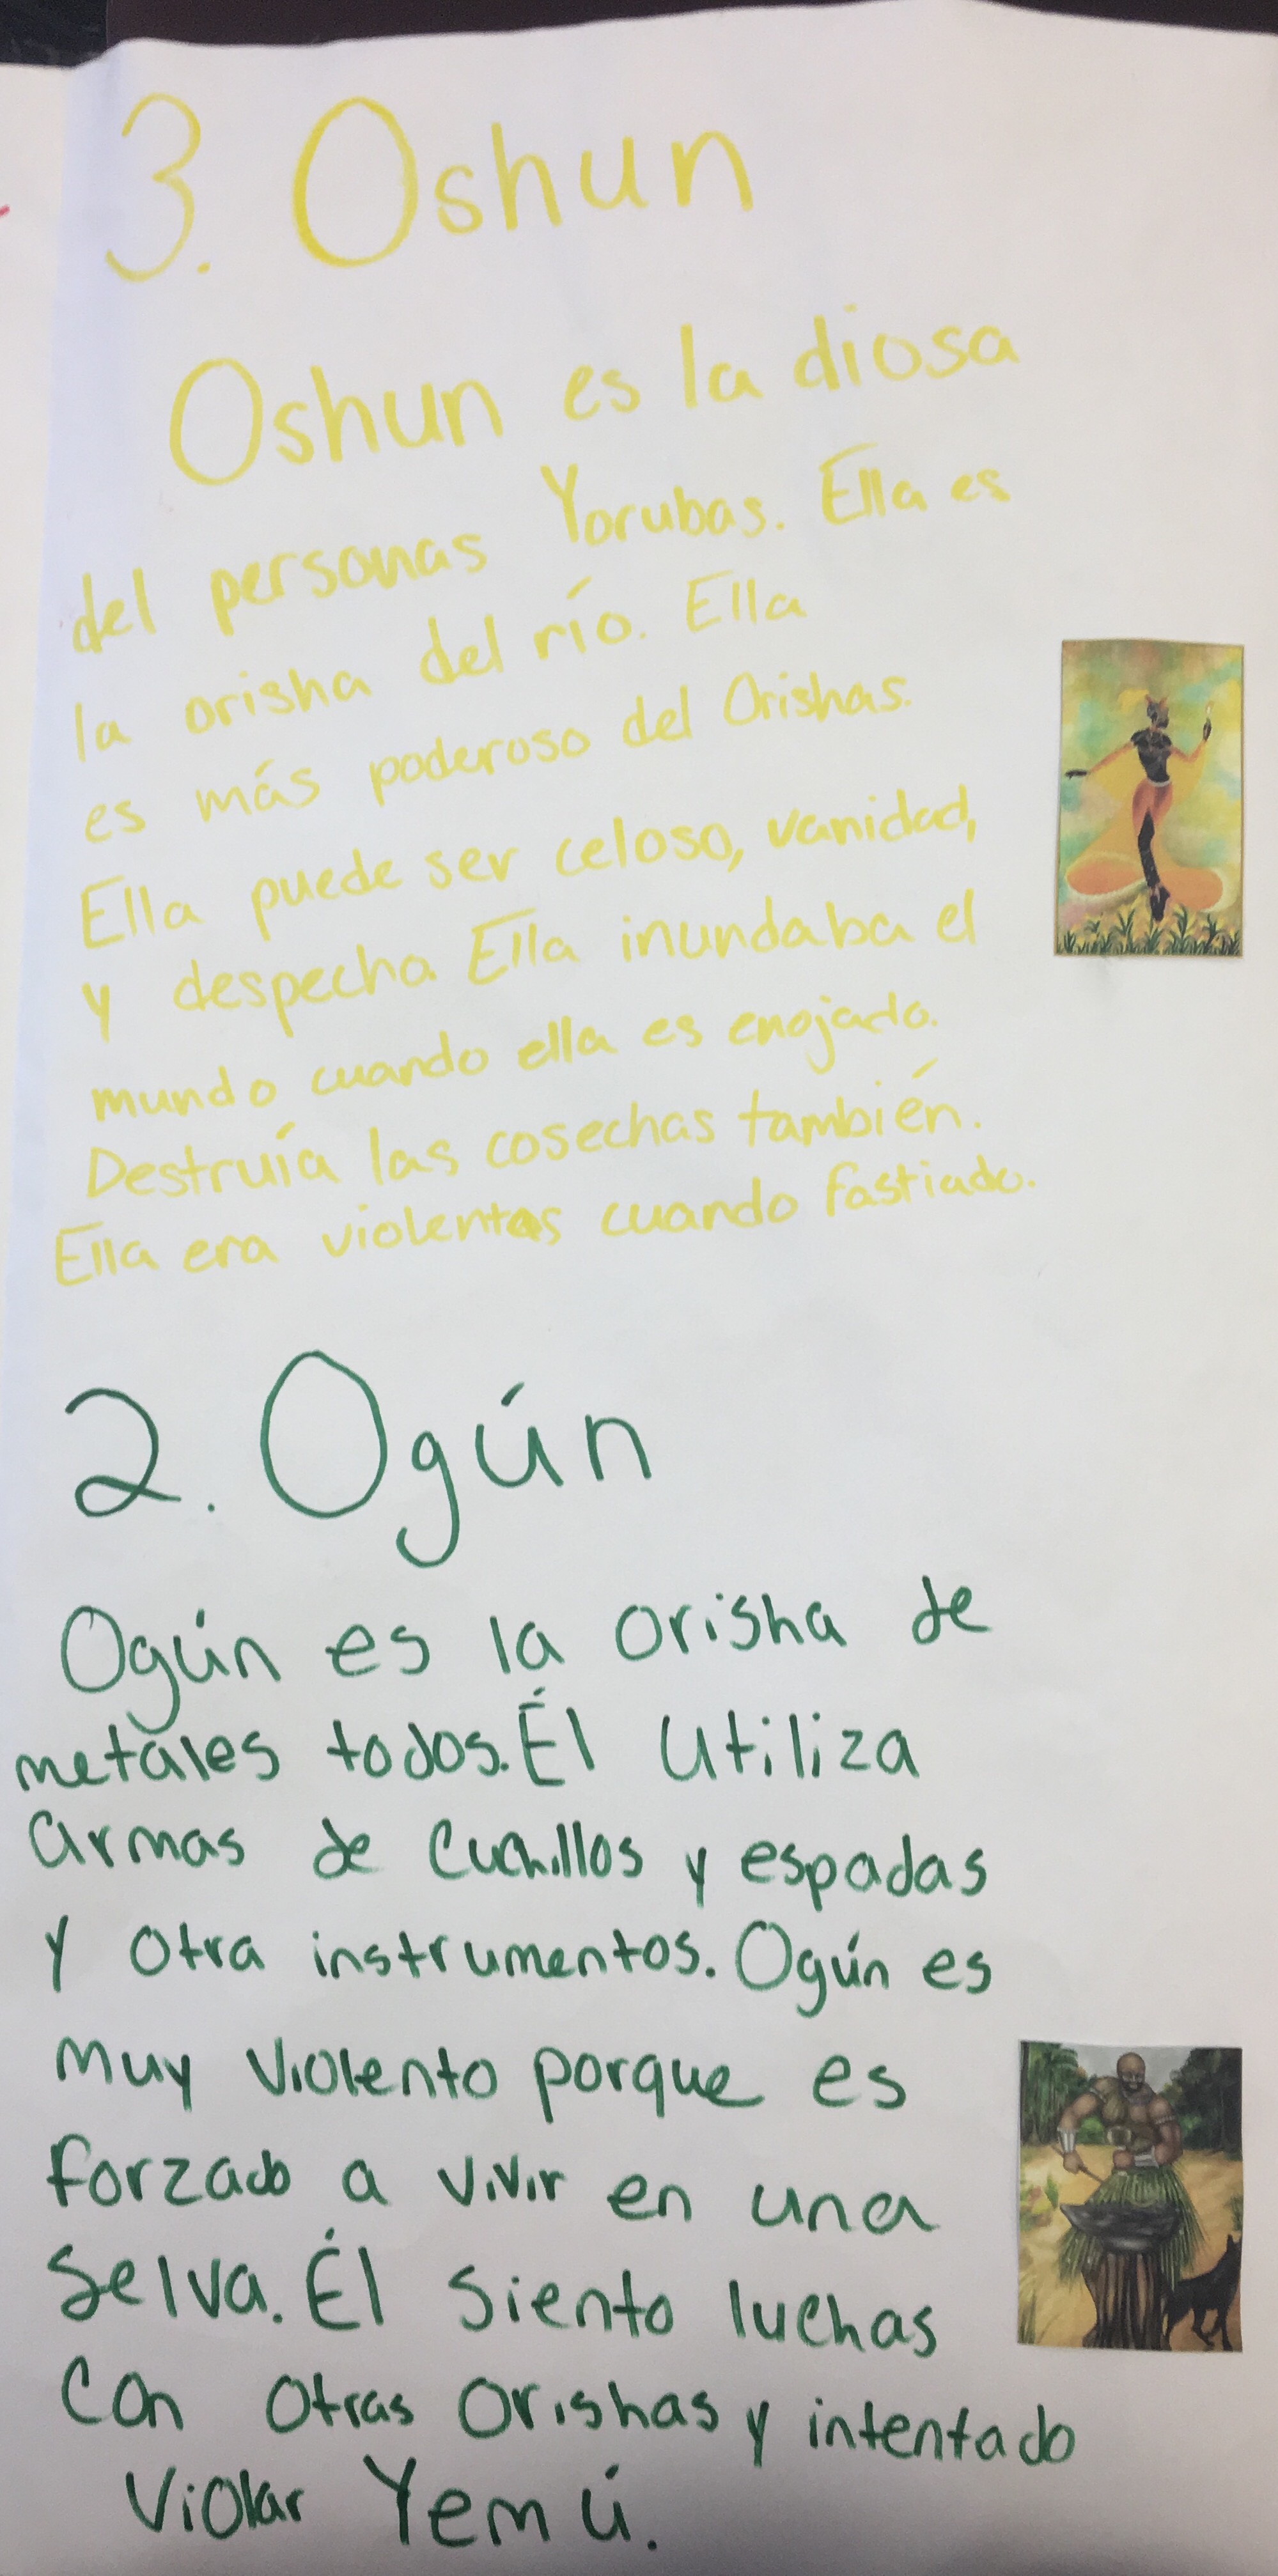 3. Oshun
Oshun es la diosa
del personas Yorubas. Ella es
la orisha del río. Ella
es más poderoso del Orishas.
Ella puede ser celoso, vanidad,
y despecha. Ella inundaba el
mundo cuando ella es enojado.
Destruía las cosechas también.
Ella era violentas cuando fastiado.
2. Ogún
Ogún es la orisha de
metales todos. Él utiliza
armas de cuchillos y espadas
y otra instrumentos. Ogún es
muy violento porque es
forzado a vivir en una
selva. Él siento luchas
con otras orishas y intentado
violar Yemú.